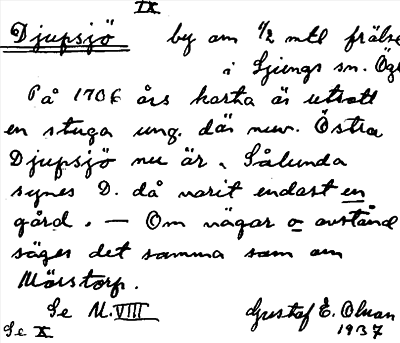 IX
Djupsjö by om 1/2 mtl frälse
i Ljungs sn. Ögl
På 1706 års karta är utsatt
en stuga ung. där nuv. Östra
Djupsjö nu är. Sålunda
synes D. då varit endast en
gård. — Om vägar o avstånd
säges det samma som om
Mårstorp.
Se M.VIII Gustaf E. Olman
Se X 1937